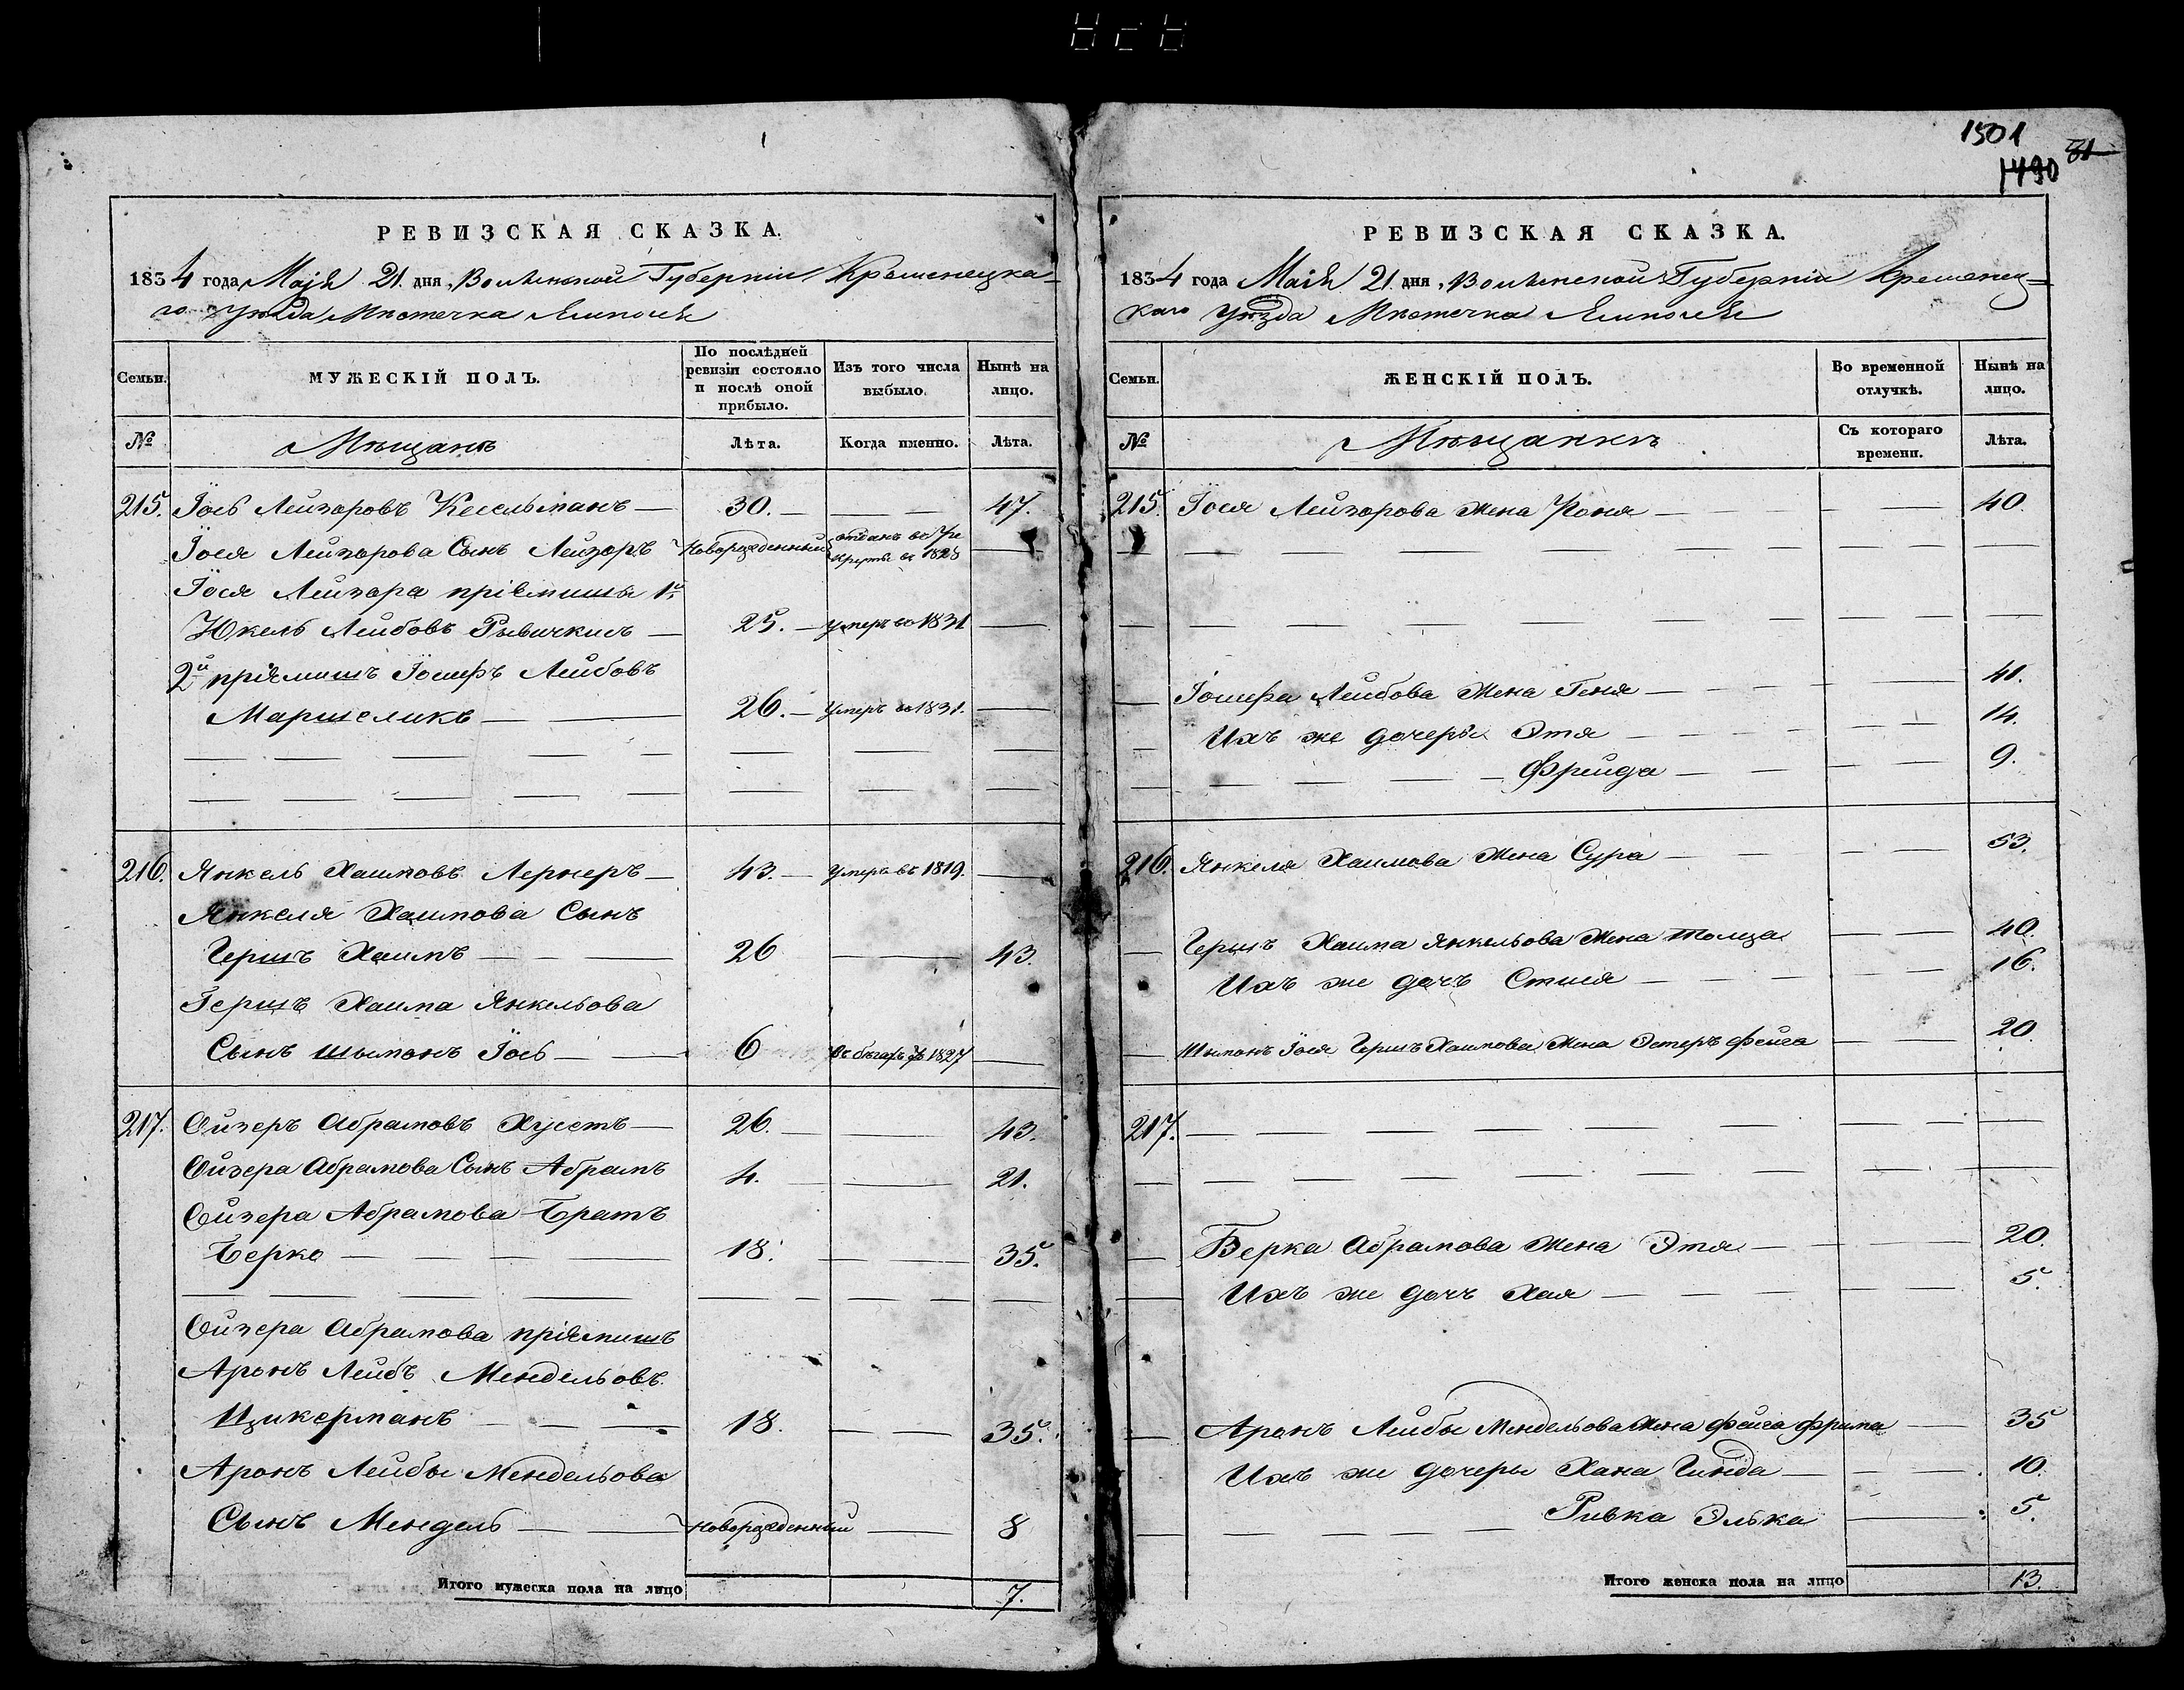 1501
1490
31
РЕВИЗСКАЯ СКАЗКА.
1834 года Маія 21 дня, Волынской Губерніи Кременецка-
го уѣзда Мѣстечка Ямполя
Семьи.
МУЖЕСКІЙ ПОЛЪ.
По послѣдней ревизіи состояло и послѣ оной прибыло.
Изъ того числа выбыло.
Нынѣ на лицо.
№
Мѣщанъ
Лѣта.
Когда именно.
Лѣта.
215. Іось Лейзоровъ Кесельманъ — 30. — — — 47.
Іося Лейзорова Сынъ Лейзоръ Новорожденный отданъ въ Ре
круты въ 1828 —
Іося Лейзора пріемыши 1й
Юкель Лейбовъ 25. — умеръ во 1831 —
2й пріемышъ Іосифъ Лейбовъ
Маршеликъ — — 26. — умеръ во 1831. —
216. Янкель Хаимовъ Лернеръ — 43. — умеръ въ 1819. —
Янкеля Хаимова Сынъ
Гершъ Хаимъ — — — 26 — 43.
Гершъ Хаима Янкельова
Сынъ Шымонъ Іось — — 6 въ бѣгахъ съ 1827 —
217. Ойзеръ Абрамовъ Хустъ — 26. — — 43.
Ойзера Абрамова Сынъ Абрамъ 4. — — 21.
Ойзера Абрамова Братъ
Берко — — — 18. — — 35.
Ойзера Абрамова пріемышъ
Аронъ Лейбъ Мендельовъ
Цукерманъ — — — 18. — — 35.
Аронъ Лейбы Мендельова
Сынъ Мендель — — новорожденный — 8
Итого мужеска пола на лицо 7.
РЕВИЗСКАЯ СКАЗКА.
1834 года Маія 21 дня, Волынской Губерніи Кременец-
каго уѣзда Мѣстечка Ямполя
Семьи.
ЖЕНСКІЙ ПОЛЪ.
Во временной отлучкѣ.
Нынѣ на лицо.
№
Мѣщанкъ
Съ котораго времени.
Лѣта.
215. Іося Лейзорова жена Роня — — — — — 40.
— Іосифа Лейбова жена Геня — — — — — 41.
— Ихъ же дочеры Этя — — — — — 14.
— — — — Фрейда — — — — 9.
216. Янкеля Хаимова жена Сура — — — — — 53.
— Гершъ Хаима Янкельова жена — — 40.
Ихъ же дочъ Стися — — — — — 16.
— Шымонъ Іося Гершъ Хаимова жена Эстеръ Фейга — — 20.
217. — — — — — — — — —
— Берка Абрамова жена Этя — — — 20.
— Ихъ же дочъ Хая — — — — — 5.
— Аронъ Лейбы Мендельова жена Фейга Фрима — 35
Ихъ же дочеры Хана Гинда — — — 10.
— — — — — Ривка Элька — 5.
Итого женска пола на лицо 13.